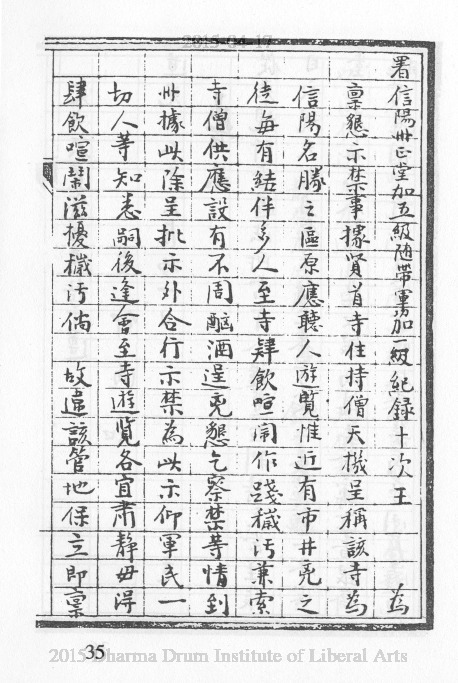 2015-04-17
署信陽州正堂加五級随帶軍功加一級紀錄十次王　為
稟懇示禁事據賢首寺住持僧天機呈稱該寺為
信陽名勝之區原應聽人遊覽惟近有市井兇之
徒每有結伴多人至寺肆飲喧闹作踐穢汚兼索
寺僧供應設有不周酗酒逞兇懇乞察禁等情到
州據此除呈批示外合行示禁為此示仰軍民一
切人等知悉嗣後逢會至寺遊覽各宜肅靜毋得
肆飲喧鬧滋擾穢汚倘　故違該管地保立即稟
35
2015 Dharma Drum Institute of Liberal Arts